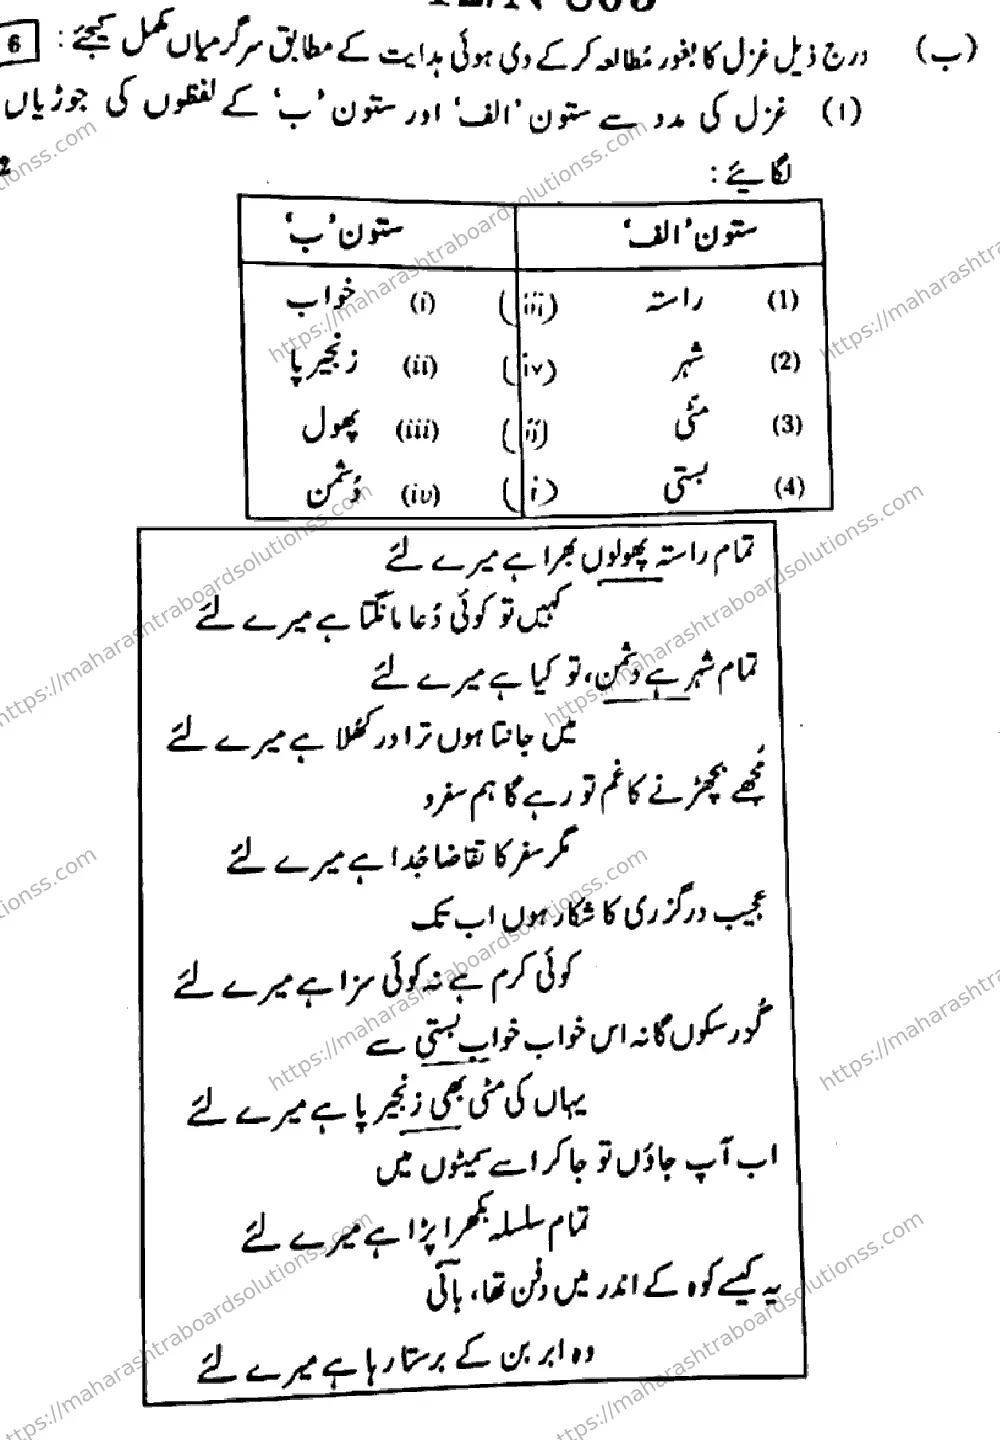 (ب) درج ذیل غزل کا بغور مُطالعہ کرکے دی ہوئی ہدایت کے مطابق سرگرمیاں مکمل کیجئے : 6
(۱) غزل کی مدد سے ستون 'الف' اور ستون 'ب' کے لفظوں کی جوڑیاں
لگائیے : 2
ستون 'الف' ستون 'ب'
(1) راستہ (iii) (i) خواب
(2) شہر (iv) (ii) زنجیرِ پا
(3) مٹّی (ii) (iii) پھول
(4) بستی (i) (iv) دُشمن
تمام راستہ پھولوں بھرا ہے میرے لئے
کہیں تو کوئی دُعا مانگتا ہے میرے لئے
تمام شہر ہے دشمن، تو کیا ہے میرے لئے
میں جانتا ہوں ترا در کھُلا ہے میرے لئے
مُجھے بچھڑنے کا غم تو رہے گا ہم سفرو
مگر سفر کا تقاضا جُدا ہے میرے لئے
عجیب درگزری کا شکار ہوں اب تک
کوئی کرم ہے نہ کوئی سزا ہے میرے لئے
گُزر سکوں گا نہ اس خواب خواب بستی سے
یہاں کی مٹی بھی زنجیر پا ہے میرے لئے
اب آپ جاؤں تو جاکر اسے سمیٹوں میں
تمام سلسلہ بکھرا پڑا ہے میرے لئے
یہ کیسے کوہ کے اندر میں دفن تھا، بانی
وہ ابر بن کے برستا رہا ہے میرے لئے
https://maharashtraboardsolutionss.com